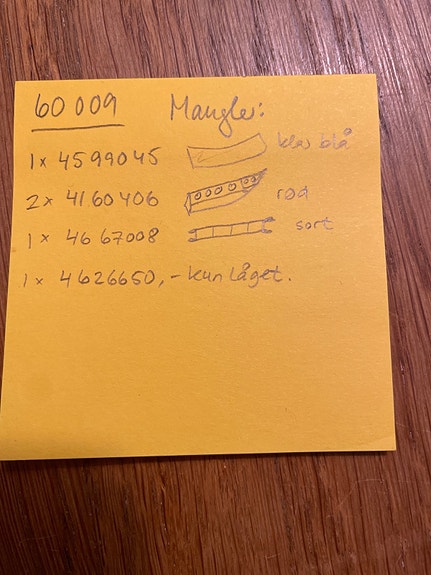 60009 Mangler:
1x 4599045 klar blå
2x 4160406 rød
1x 4667008 sort
1x 4626650,- kun låget.